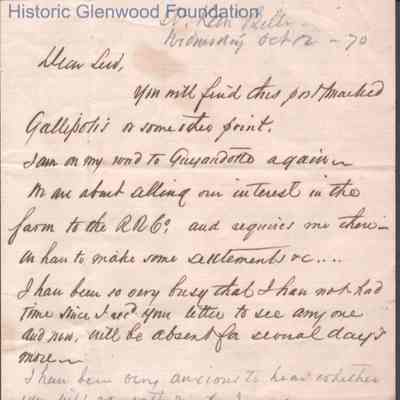 Historic Glenwood Foundation
Wednesday Oct — 70
Dear Lew,
You will find this post marked
Gallipolis or some other point.
I am on my road to Guyandotte again —
We are about selling our interest in the
farm to the RRCo. and requires me there —
to make some settlements &c....
I have been so very busy that I have not had
time since I recd your letter to see any one
and now, will be absent for several days
more —
I have been very anxious to hear whether
you will